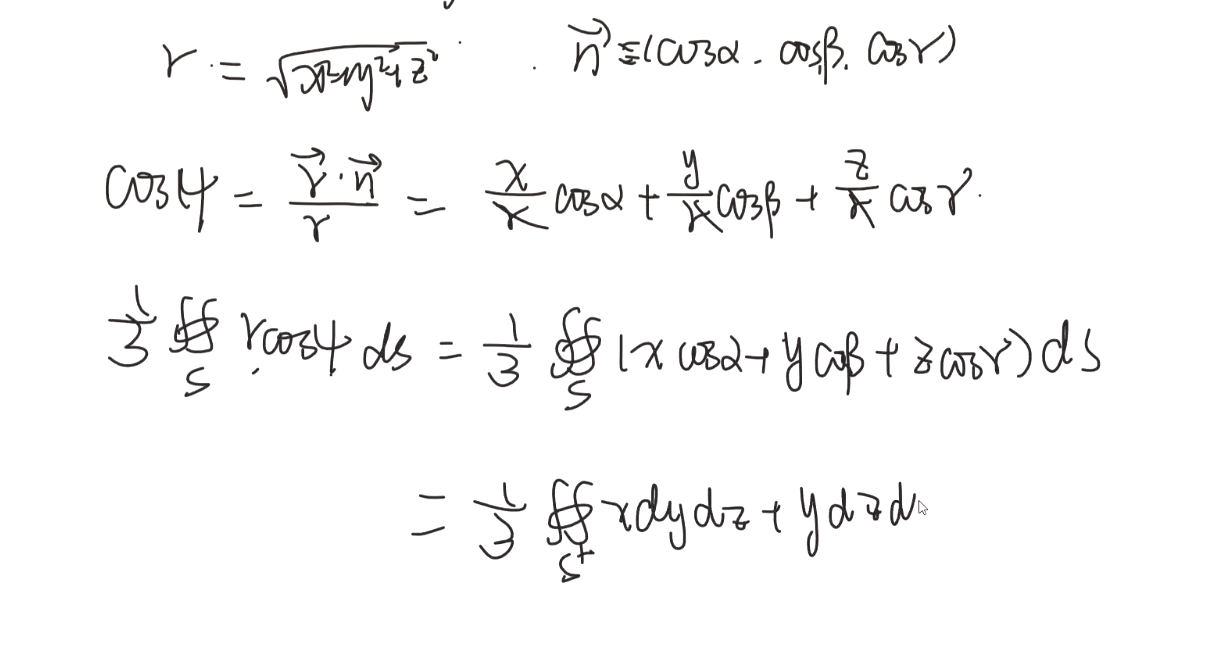 r = √(x²+y²+z²) . n⃗ = (cosα . cosβ. cosγ)
cosψ = (r⃗·n⃗)/r = x/r cosα + y/r cosβ + z/r cosγ.
1/3 ∯_S r cosψ ds = 1/3 ∯_S (x cosα + y cosβ + z cosγ) dS
= 1/3 ∯_S⁺ x dy dz + y dz d